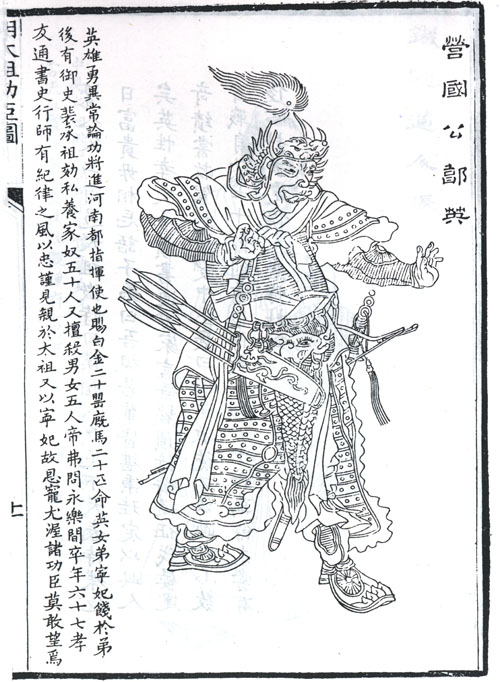 營國公郭英
英雄勇異常論功將進河南都指揮使也賜白金二十罌廐馬二十匹命英女弟寧妃餞於弟
後有御史裴承祖劾私養家奴五十人又擅殺男女五人帝弗問永樂間卒年六十七孝
友通書史行師有紀律之風以忠謹見親於太祖又以寧妃故恩寵尤渥諸功臣莫敢望焉
明太祖功臣圖
上